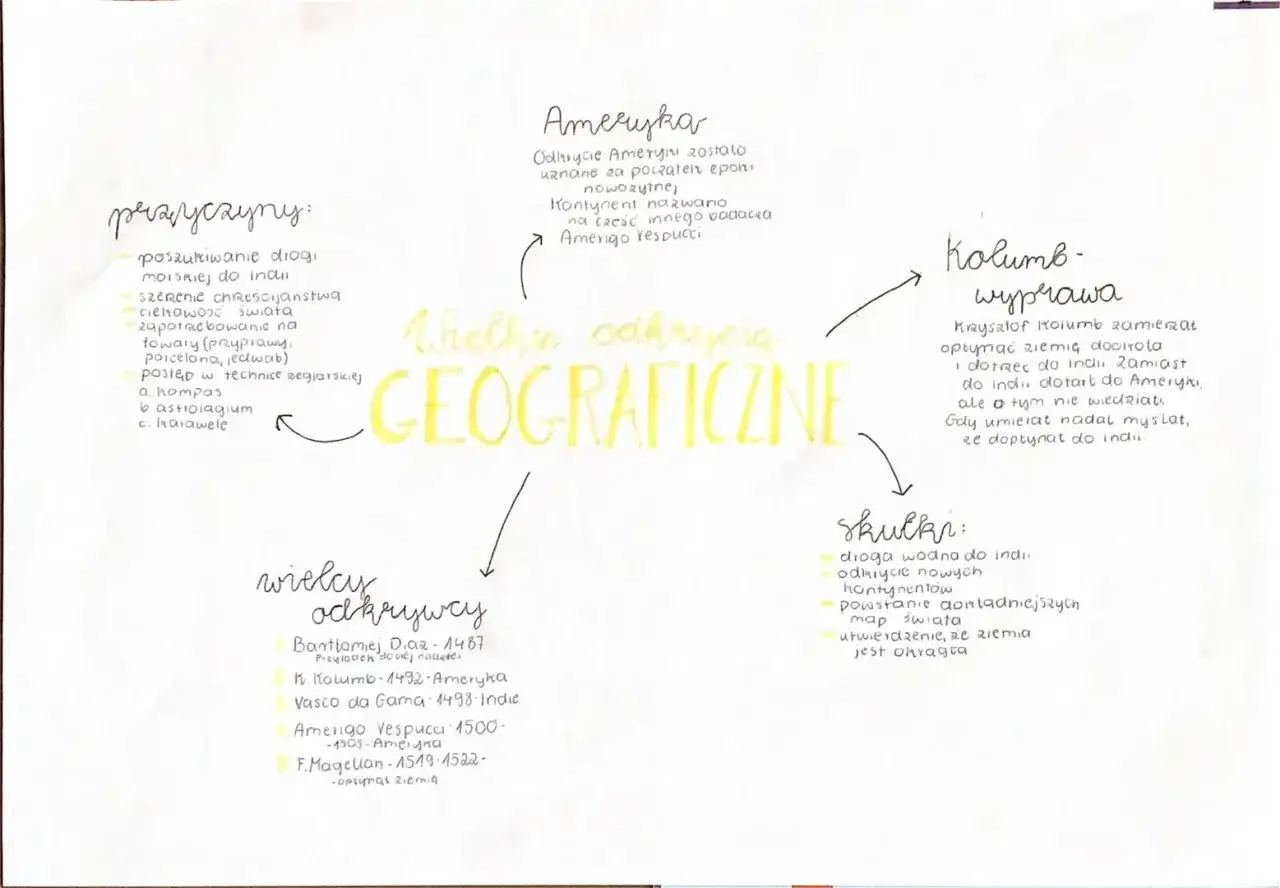 Wielkie odkrycia
GEOGRAFICZNE
Ameryka
Odkrycie Ameryki zostało
uznane za początek epoki
nowożytnej
Kontynent nazwano
na cześć innego badacza
Amerigo Vespucci
przyczyny:
poszukiwanie drogi
morskiej do Indii
szerzenie chrześcijaństwa
ciekawość świata
zapotrzebowanie na
towary (przyprawy,
porcelana, jedwab)
postęp w technice żeglarskiej
a. kompas
b astrolagium
c. karawele
Kolumb -
wyprawa
Krzysztof Kolumb zamierzał
opłynąć ziemię dookoła
i dotrzeć do Indii Zamiast
do Indii dotarł do Ameryki,
ale o tym nie wiedział.
Gdy umierał nadal myślał,
że dopłynął do Indii
skutki:
droga wodna do Indii
odkrycie nowych
kontynentów
powstanie dokładniejszych
map świata
utwierdzenie, że ziemia
jest okrągła
wielcy
odkrywcy
Bartłomiej Diaz - 1487
Przylądek dobrej nadziei
K. Kolumb - 1492 - Ameryka
Vasco da Gama - 1498 - Indie
Amerigo Vespucci - 1500 -
- 1505 - Ameryka
F. Magellan - 1519 - 1522 -
- opłynął ziemię